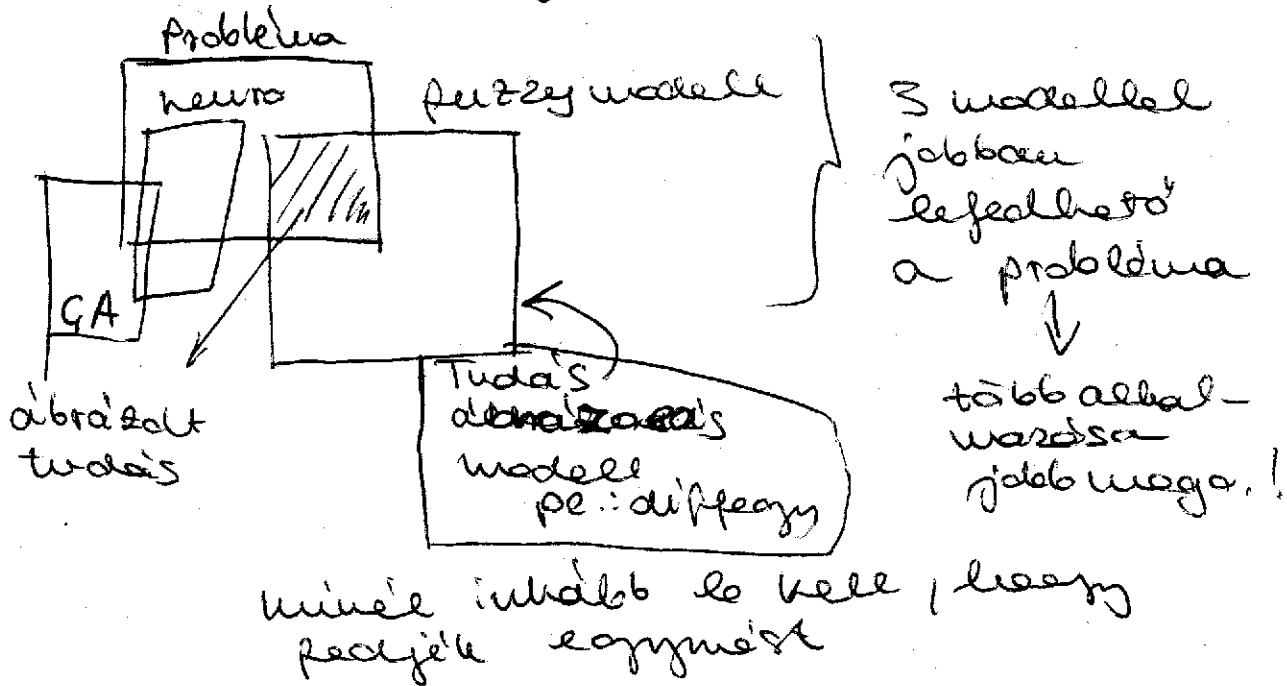 Probléma
neuro
fuzzy modell
GA
ábrázolt
tudás
Tudás
ábrázolás
modell
pl.: diffegy
3 modellel
jobban
lefedhető
a probléma
több alkal-
mazása
jobb maga.!
minél inkább le kell, hogy
fedjék egymást